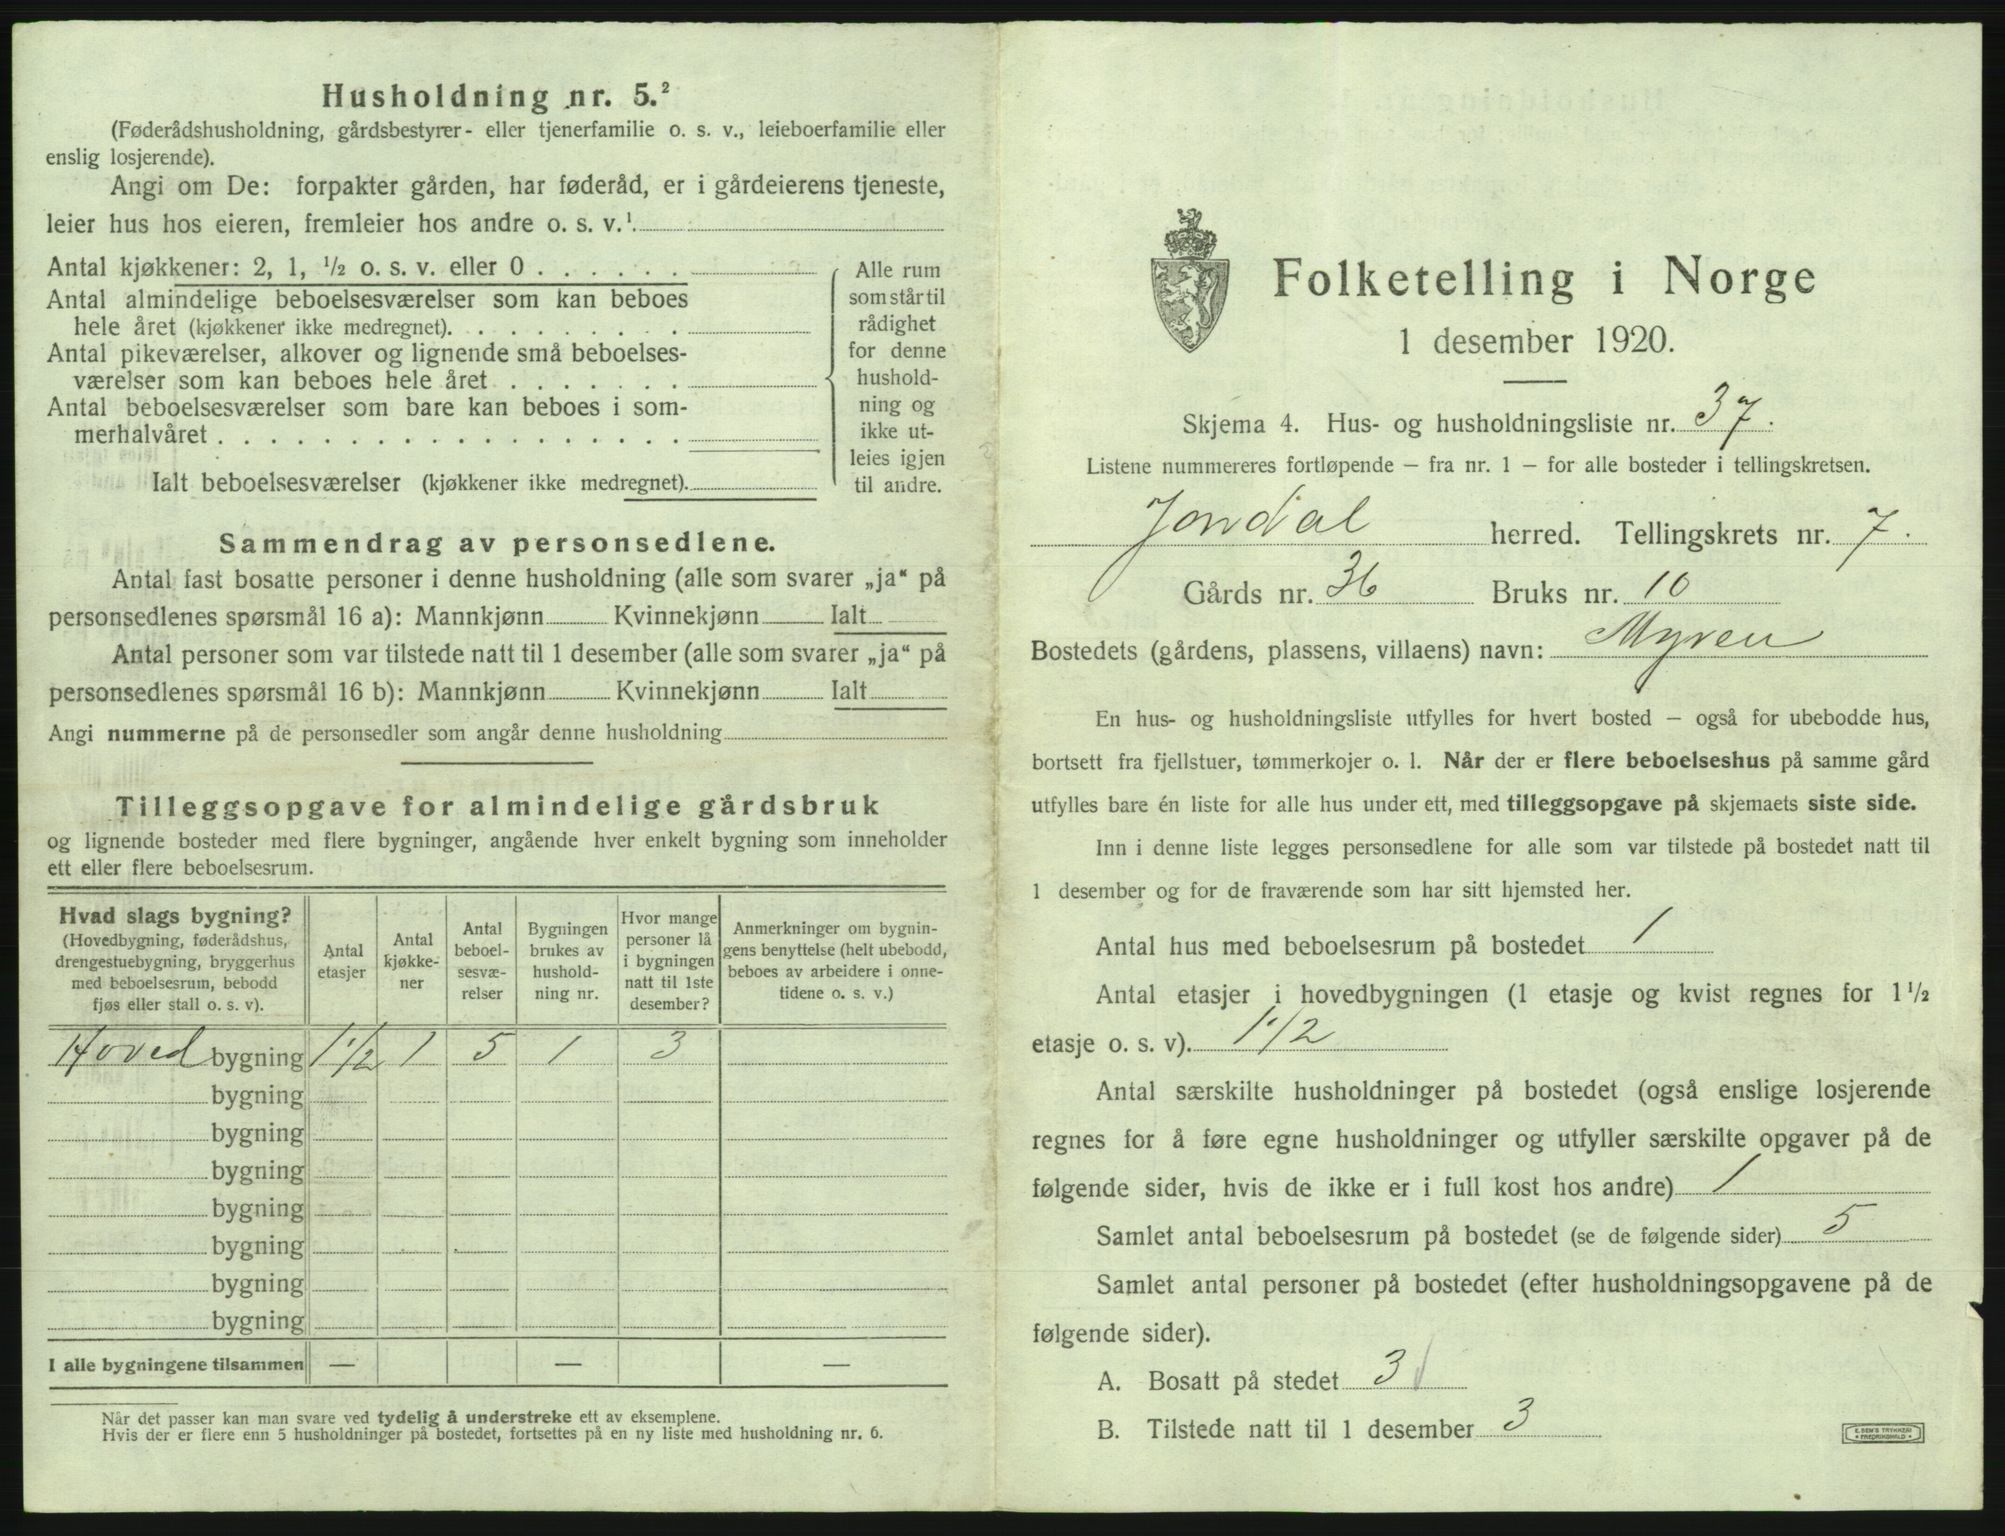 Husholdning nr. 5.²
(Føderådshusholdning, gårdsbestyrer- eller tjenerfamilie o. s. v., leieboerfamilie eller
enslig losjerende).
Angi om De: forpakter gården, har føderåd, er i gårdeierens tjeneste,
leier hus hos eieren, fremleier hos andre o. s. v.¹
Antal kjøkkener: 2, 1, ½ o. s. v. eller 0 . . . . . .
Antal almindelige beboelsesværelser som kan beboes
hele året (kjøkkener ikke medregnet). . . . . . . . .
Antal pikeværelser, alkover og lignende små beboelses-
værelser som kan beboes hele året . . . . . . .
Antal beboelsesværelser som bare kan beboes i som-
merhalvåret . . . . . . . . . . . . . . . . . .
Ialt beboelsesværelser (kjøkkener ikke medregnet).
Alle rum
som står til
rådighet
for denne
hushold-
ning og
ikke ut-
leies igjen
til andre.
Sammendrag av personsedlene.
Antal fast bosatte personer i denne husholdning (alle som svarer „ja" på
personsedlenes spørsmål 16 a): Mannkjønn Kvinnekjønn Ialt
Antal personer som var tilstede natt til 1 desember (alle som svarer „ja" på
personsedlenes spørsmål 16 b): Mannkjønn Kvinnekjønn Ialt
Angi nummerne på de personsedler som angår denne husholdning
Tilleggsopgave for almindelige gårdsbruk
og lignende bosteder med flere bygninger, angående hver enkelt bygning som inneholder
ett eller flere beboelsesrum.
Hvad slags bygning?
(Hovedbygning, føderådshus,
drengestuebygning, bryggerhus
med beboelsesrum, bebodd
fjøs eller stall o. s. v).
Antal
etasjer
Antal
kjøkke-
ner
Antal
beboel-
sesvæ-
relser
Bygningen
brukes av
hushold-
ning nr.
Hvor mange
personer lå
i bygningen
natt til 1ste
desember?
Anmerkninger om bygnin-
gens benyttelse (helt ubebodd,
beboes av arbeidere i onne-
tidene o. s. v.)
Hoved bygning 1 1/2 1 5 1 3
bygning
bygning
bygning
bygning
bygning
bygning
bygning
I alle bygningene tilsammen — — —
Når det passer kan man svare ved tydelig å understreke ett av eksemplene.
Hvis der er flere enn 5 husholdninger på bostedet, fortsettes på en ny liste med husholdning nr. 6.
Folketelling i Norge
1 desember 1920.
Skjema 4. Hus- og husholdningsliste nr. 37.
Listene nummereres fortløpende – fra nr. 1 – for alle bosteder i tellingskretsen.
Jondal herred. Tellingskrets nr. 7.
Gårds nr. 36 Bruks nr. 10
Bostedets (gårdens, plassens, villaens) navn: Myren
En hus- og husholdningsliste utfylles for hvert bosted – også for ubebodde hus,
bortsett fra fjellstuer, tømmerkojer o. l. Når der er flere beboelseshus på samme gård
utfylles bare én liste for alle hus under ett, med tilleggsopgave på skjemaets siste side.
Inn i denne liste legges personsedlene for alle som var tilstede på bostedet natt til
1 desember og for de fraværende som har sitt hjemsted her.
Antal hus med beboelsesrum på bostedet 1
Antal etasjer i hovedbygningen (1 etasje og kvist regnes for 1½
etasje o. s. v). 1 1/2
Antal særskilte husholdninger på bostedet (også enslige losjerende
regnes for å føre egne husholdninger og utfyller særskilte opgaver på de
følgende sider, hvis de ikke er i full kost hos andre) 1
Samlet antal beboelsesrum på bostedet (se de følgende sider) 5
Samlet antal personer på bostedet (efter husholdningsopgavene på de
følgende sider).
A. Bosatt på stedet 3
B. Tilstede natt til 1 desember 3
E. SEM'S TRYKKERI
FREDRIKSHALD